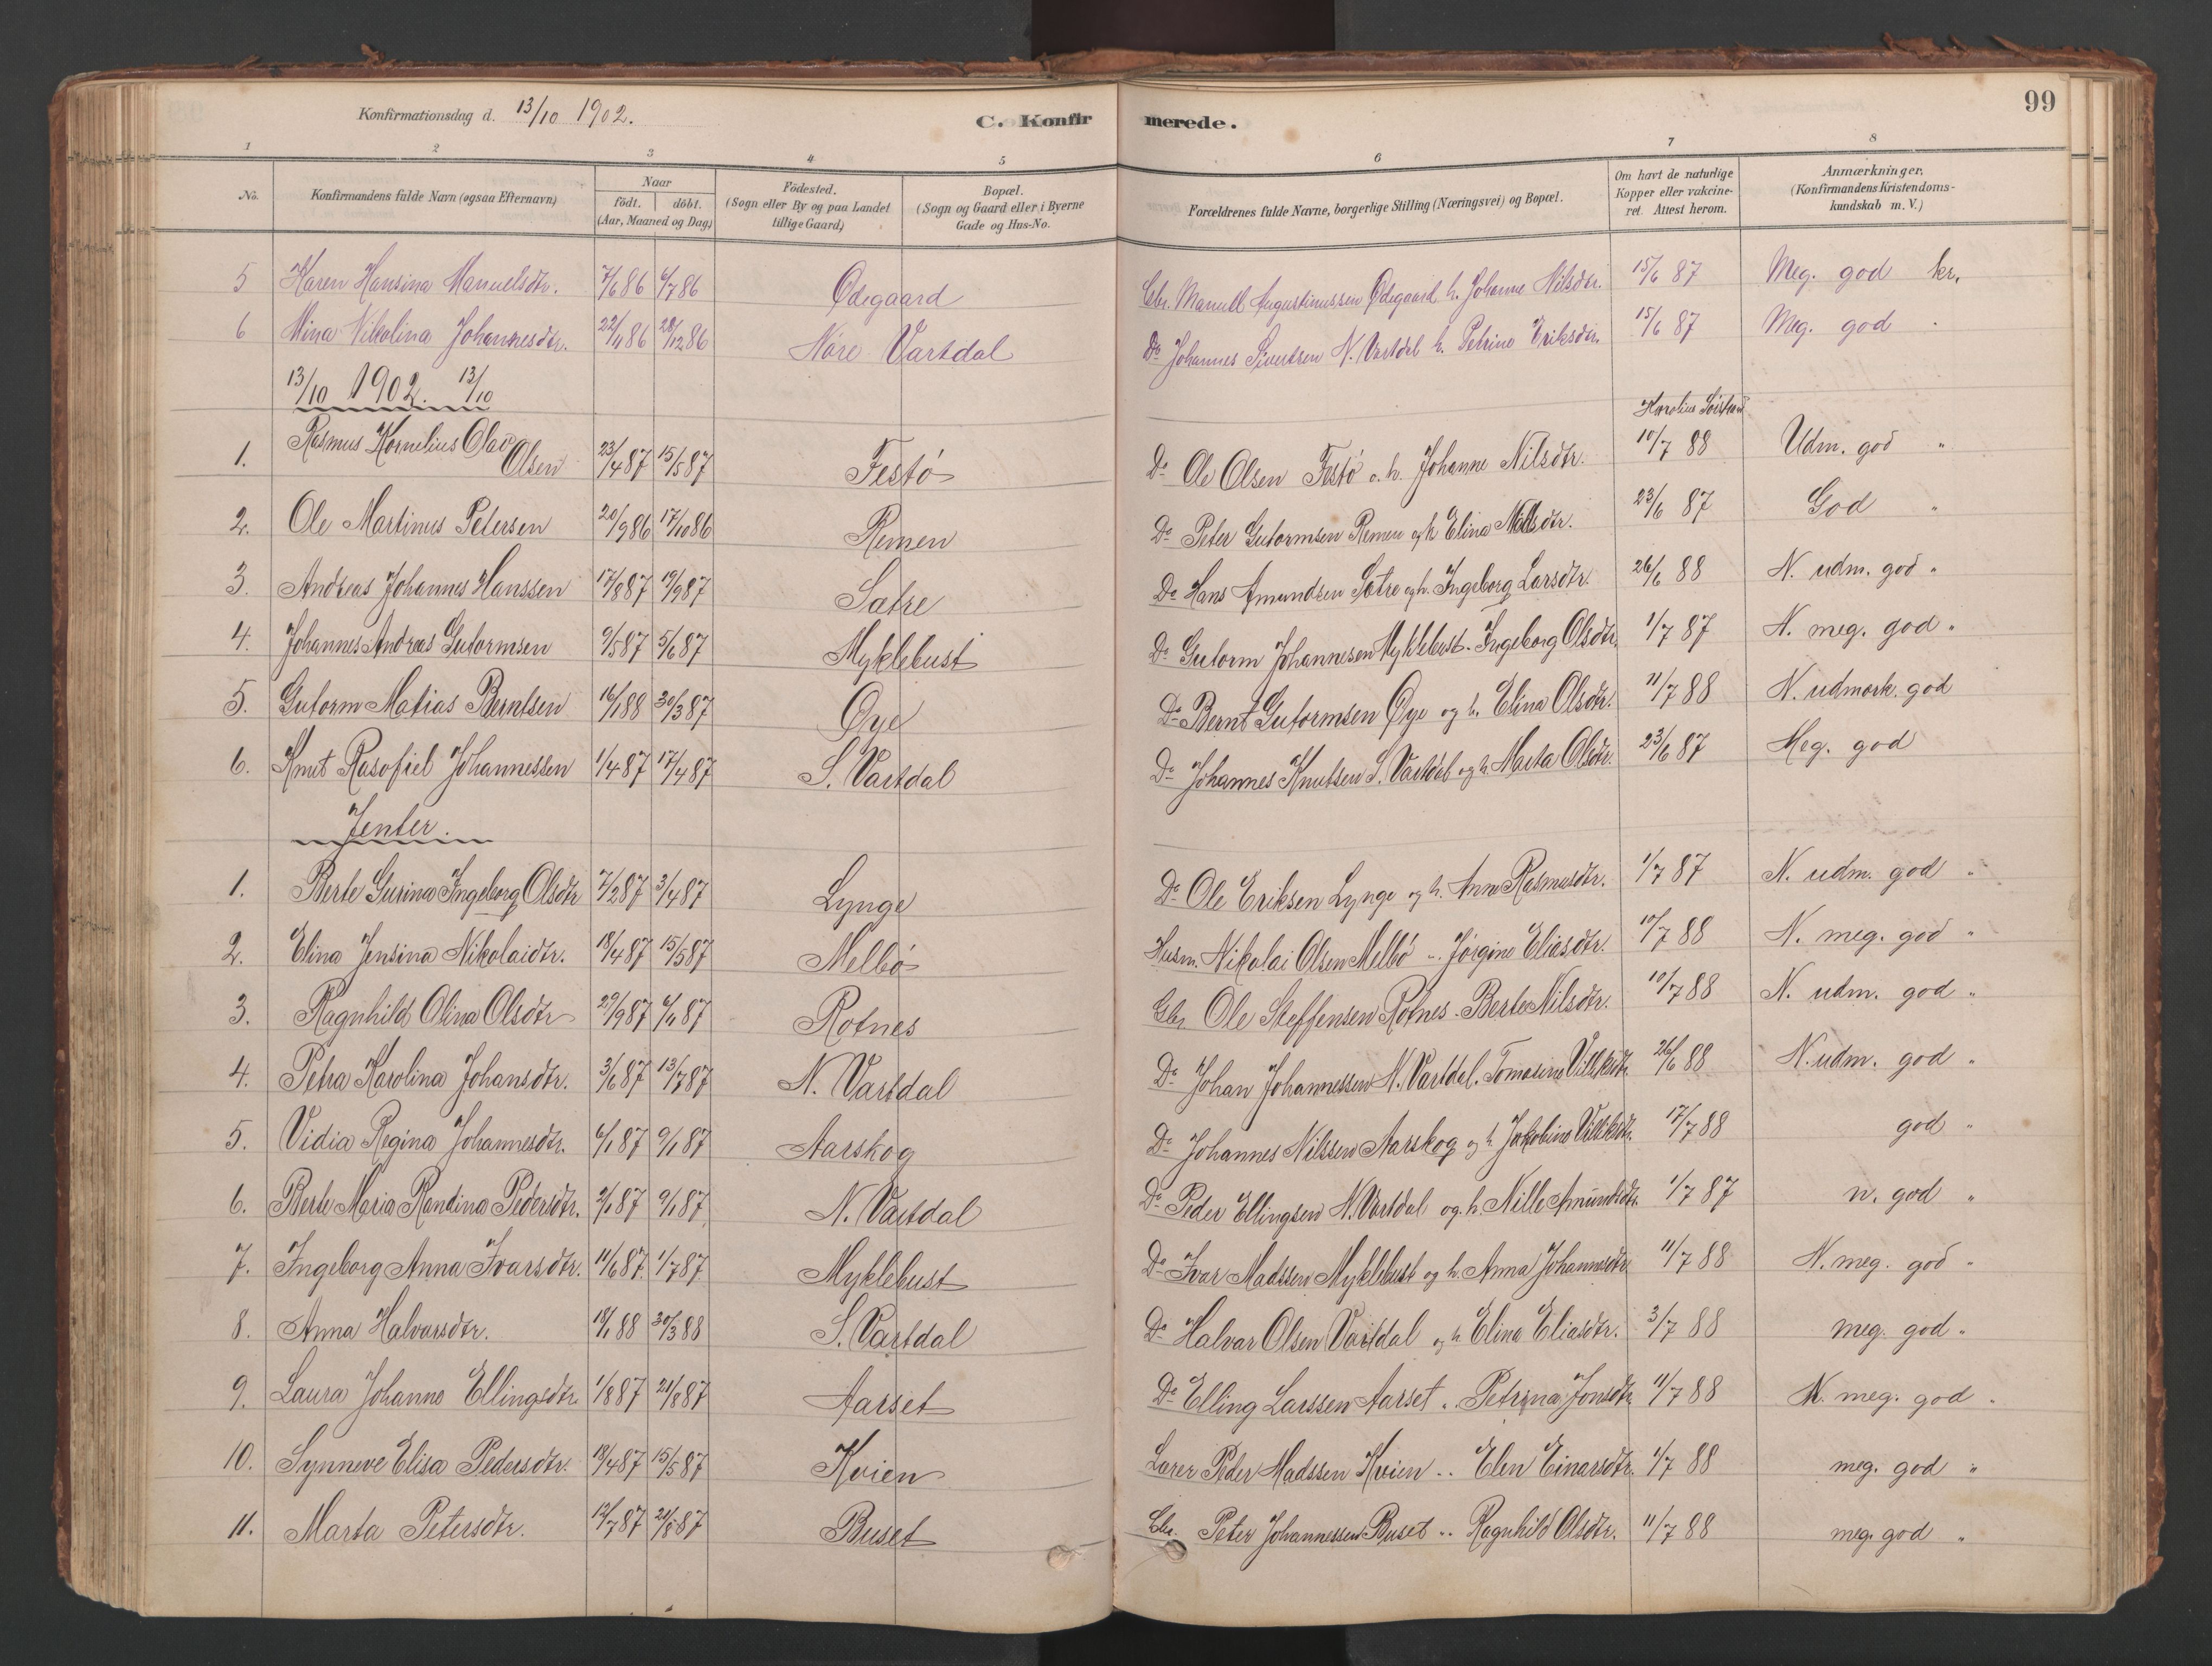 99
Konfirmationsdag d. 13/10 1902.
C. Konfirmerede.
1 2 3 4 5 6 7 8
No. Konfirmandens fulde Navn (ogsaa Efternavn) Naar födt. döbt. (Aar, Maaned og Dag) Födested. (Sogn eller By og paa Landet tillige Gaard) Bopæl. (Sogn og Gaard eller i Byerne Gade og Hus-No. Forældrenes fulde Navne, borgerlige Stilling (Næringsvei) og Bopæl. Om havt de naturlige Kopper eller vakcineret. Attest herom. Anmærkninger. (Konfirmandens Kristendomskundskab m. V.)
5 Karen Hansina Manuelsdtr. 7/6 86 6/7 86 Ødegaard Gbr. Manuel Augustinussen Ødegaard h. Johanne Nilsdtr. 15/6 87 Meg. god kr.
6 Mina Nikolina Johannesdtr. 22/11 86 28/12 86 Nore Vartdal Do Johannes Sivertsen N. Vartdal h. Petrine Eriksdtr. 15/6 87 Meg. god
13/10 1902. 13/10
1. Rasmus Kornelius Olav Olsen 23/4 87 15/5 87 Festö Do Ole Olsen Festö o. h. Johanne Nilsdtr. 10/7 88 Udm. god "
2. Ole Martinus Petersen 20/9 86 17/10 86 Remen Do Peter Gutormsen Remen og h Elina Nilsdtr. 23/6 87 God "
3. Andreas Johannes Hanssen 17/8 87 19/9 87 Sætre Do Hans Amundsen Sætre og h. Ingeborg Larsdtr. 26/6 88 N. udm. god "
4. Johannes Andreas Gutormsen 9/5 87 5/6 87 Myklebust Do Gutorm Johannesen Myklebust - Ingeborg Olsdtr. 1/7 87 N. meg. god "
5. Gutorm Matias Berntsen 16/1 88 30/3 87 Øye Do Bernt Gutormsen Øye og h. Elina Olsdtr. 11/7 88 N. udmerk. god
6. Knut Rasofiel Johannessen 1/4 87 17/4 87 S. Vartdal Do Johannes Knutsen S. Vartdal og h. Marta Olsdtr. 23/6 87 Meg. god
Jenter.
1. Berte Gurina Ingeborg Olsdtr 7/2 87 3/4 87 Lynge Do Ole Eriksen Lynge og h. Anne Rasmusdtr. 1/7 87 N. udm. god "
2. Elina Jensina Nikolaidtr. 18/4 87 15/5 87 Melbö Husm. Nikolai Olsen Melbö " Jørgine Eliasdtr. 10/7 88 N. meg. god "
3. Ragnhild Olina Olsdtr 29/9 87 6/11 87 Rotnes Gbr Ole Steffensen Rotnes - Berte Nilsdtr. 10/7 88 N. udm. god "
4. Petra Karolina Johansdtr. 3/6 87 13/7 87 N. Vartdal Do Johan Johannessen N. Vartdal. Tomasine 26/6 88 N. udm. god "
5. Vidia Regina Johannesdtr. 6/1 87 9/1 87 Aarskog Do Johannes Nilssen Aarskog og h. Jakobine 17/7 88 god "
6. Berte Maria Randina Pedersdtr. 2/1 87 9/1 87 N. Vartdal Do Peder Ellingsen N. Vartdal og h. Nille Amundsdtr. 1/7 87 n. god "
7. Ingeborg Anna Ivarsdtr. 11/6 87 1/7 87 Myklebust Do Ivar Madssen Myklebust og h. Anna Johannesdtr 11/7 88 N. meg. god "
8. Anna Halvarsdtr. 18/1 88 30/3 88 S. Vartdal Do Halvar Olsen Vartdal og h Elina Eliasdtr. 3/7 88 meg. god "
9. Laura Johanne Ellingsdtr 1/8 87 21/8 87 Aarset Do Elling Larssen Aarset " Petrina Jonsdtr. 11/7 88 N. meg. god "
10. Synneve Elisa Pedersdtr. 18/4 87 15/5 87 Kvien Lærer Peder Madssen Kvien " Elen Einarsdtr. 1/7 88 meg. god "
11. Marta Petersdtr. 12/7 87 21/8 87 Buset Gbr. Peter Johannessen Buset " Ragnhild Olsdtr. 11/7 88 meg. god "